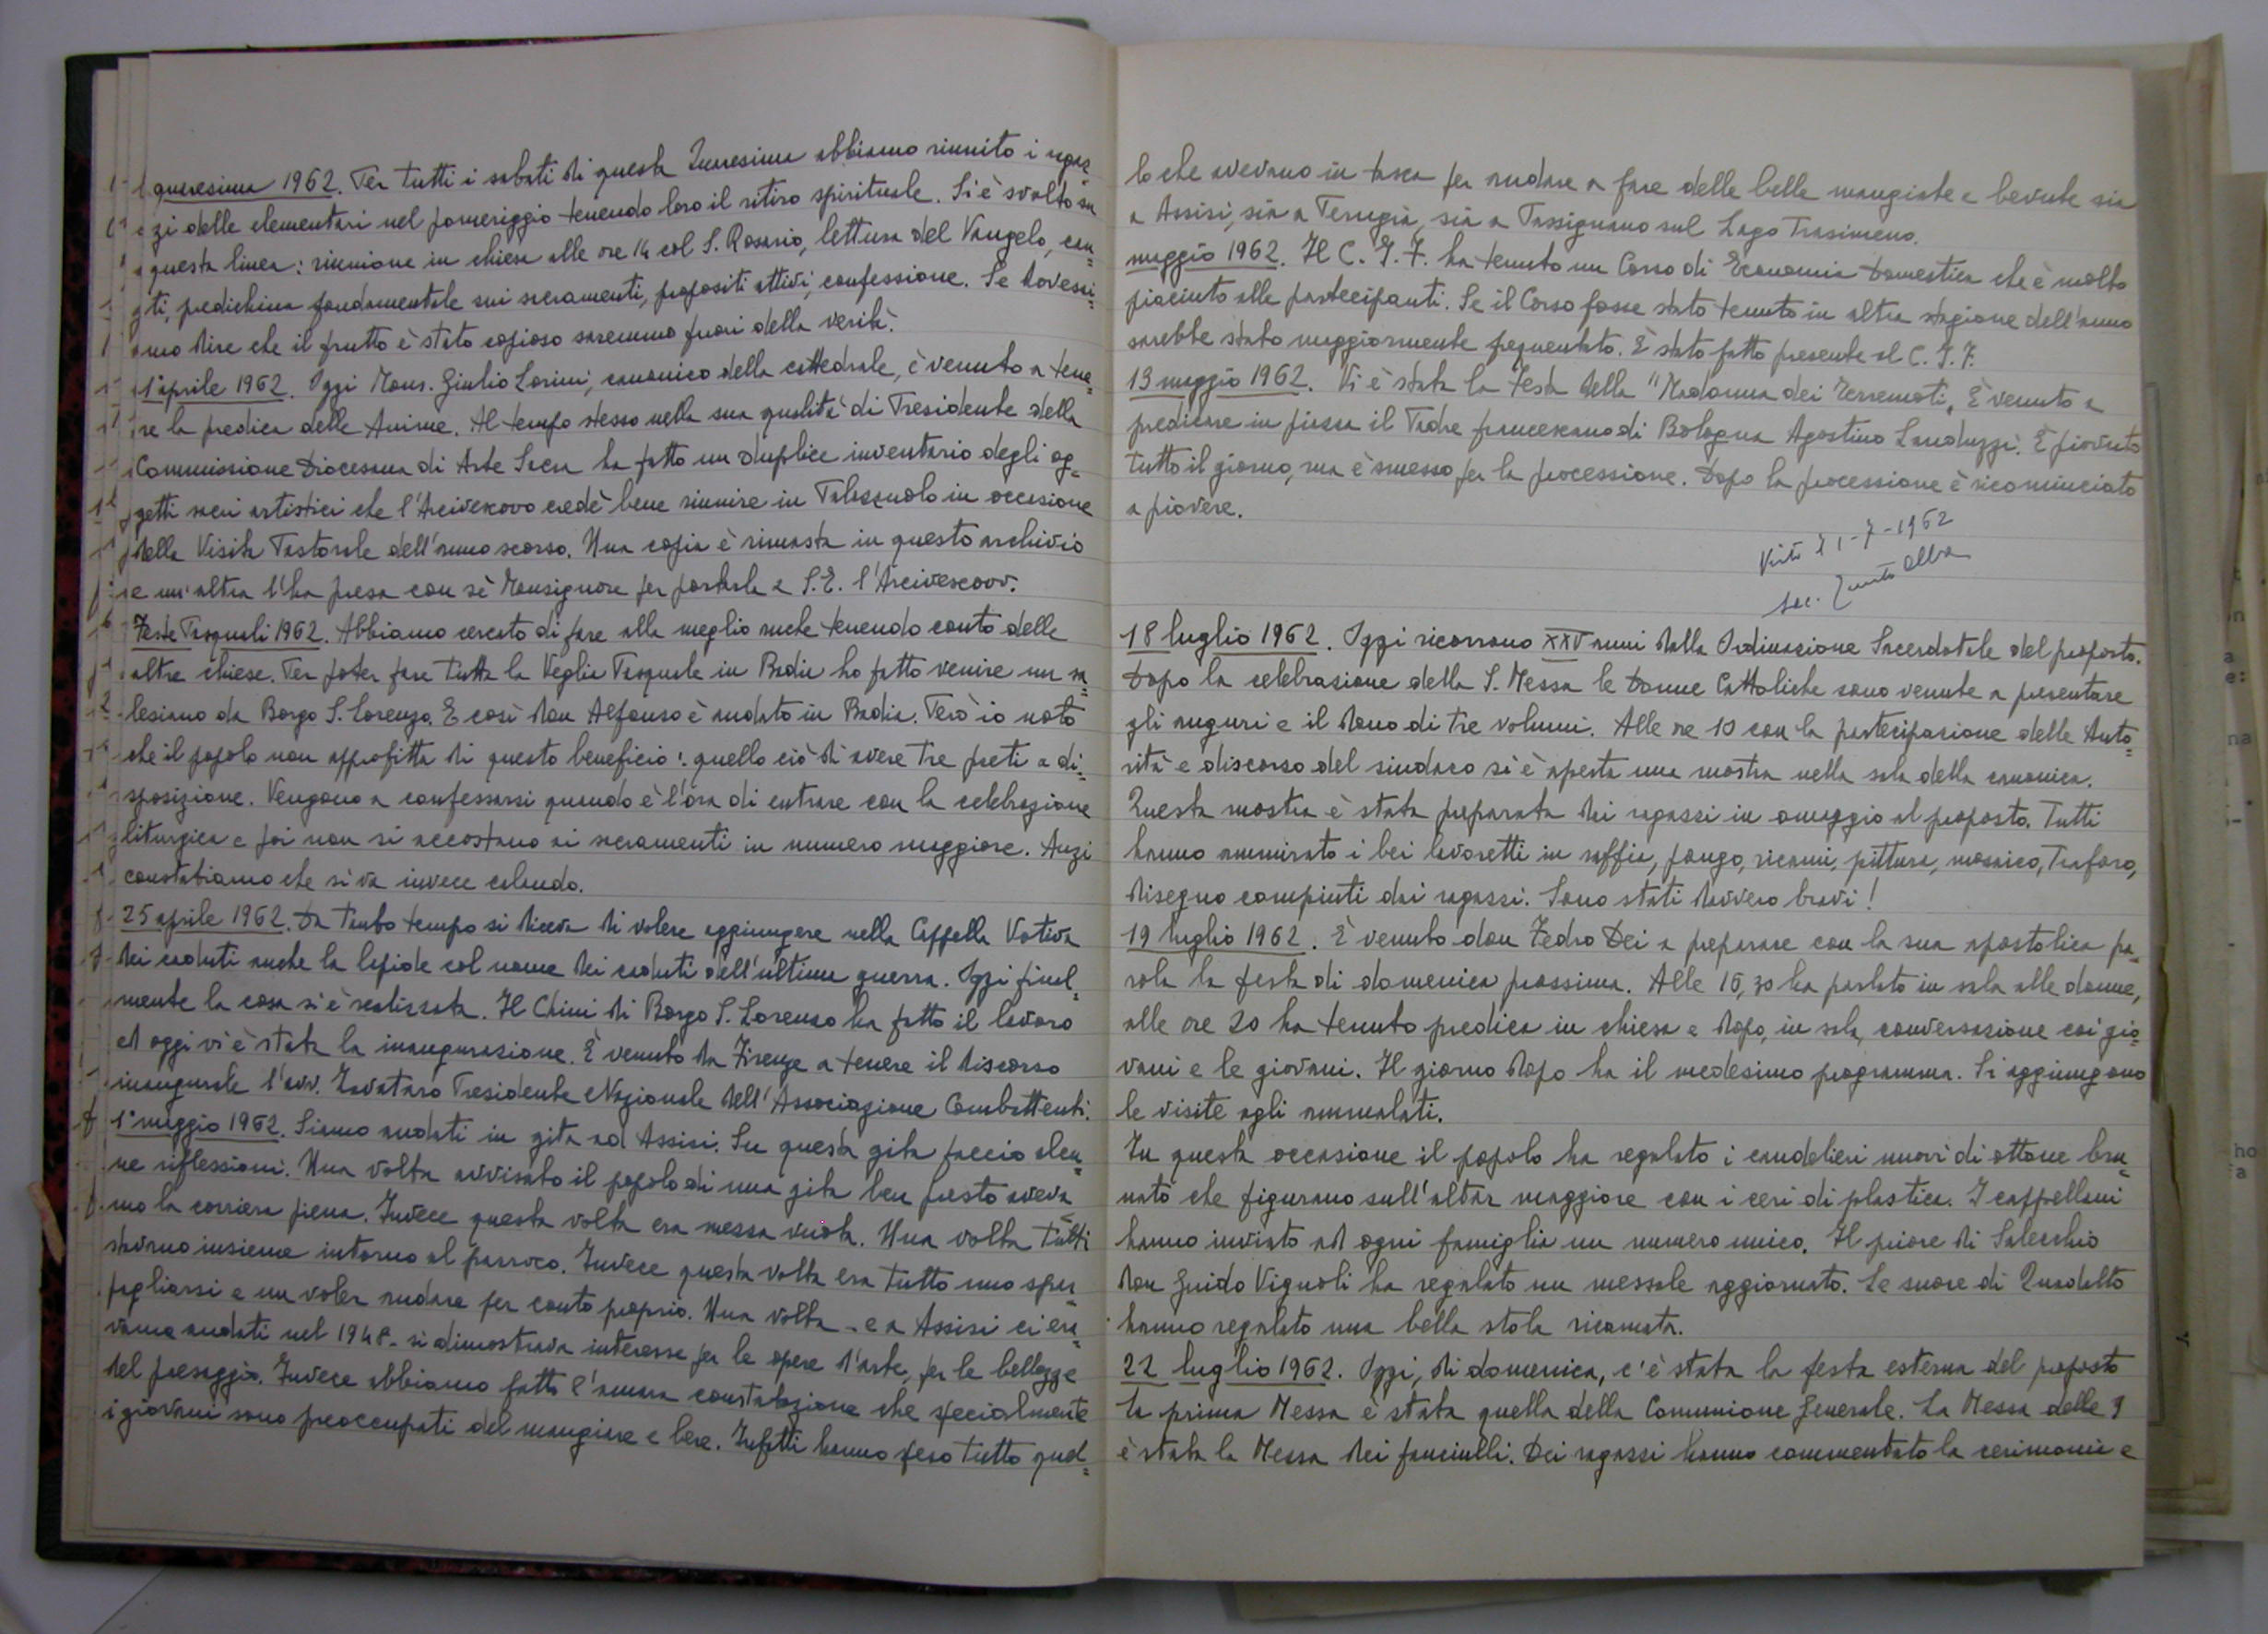 quaresima 1962. Per tutti i sabati di questa Quaresima abbiamo riunito i ragaz=
zi delle elementari nel pomeriggio tenendo loro il ritiro spirituale. Si è svolto su
questa linea: riunione in chiesa alle ore 14 col S. Rosario, lettura del Vangelo, can=
ti, predichina fondamentale sui sacramenti, propositi attivi, confessione. Se dovessi=
amo dire che il frutto è stato copioso saremmo fuori della verità.
1° aprile 1962. Oggi Mons. Giulio Lorini, canonico della cattedrale, è venuto a tene=
re la predica delle Anime. Al tempo stesso nella sua qualità di Presidente della
Commissione Diocesana di Arte Sacra ha fatto un duplice inventario degli og=
getti sacri artistici che l'Arcivescovo credè bene riunire in Palazzuolo in occasione
della Visita Pastorale dell'anno scorso. Una copia è rimasta in questo archivio
e un'altra l'ha presa con sè Monsignore per portarla a S.E. l'Arcivescovo.
Feste Pasquali 1962. Abbiamo cercato di fare alla meglio anche tenendo conto delle
altre chiese. Per poter fare tutta la Veglia Pasquale in Badia ho fatto venire un sa=
lesiano da Borgo S. Lorenzo. E così don Alfonso è andato in Badia. Però io noto
che il popolo non approfitta di questo beneficio: quello ciò di avere tre preti a di=
sposizione. Vengono a confessarsi quando è l'ora di entrare con la celebrazione
liturgica e poi non si accostano ai sacramenti in numero maggiore. Anzi
constatiamo che si va invece calando.
25 aprile 1962. Da tanto tempo si diceva di volere aggiungere nella Cappella Votiva
dei caduti anche la lapide col nome dei caduti dell'ultima guerra. Oggi final=
mente la cosa si è realizzata. Il Chini di Borgo S. Lorenzo ha fatto il lavoro
ed oggi vi è stata la inaugurazione. È venuto da Firenze a tenere il discorso
inaugurale l'avv. Zavataro Presidente Nazionale dell'Associazione Combattenti.
1° maggio 1962. Siamo andati in gita ad Assisi. Su questa gita faccio alcu=
ne riflessioni. Una volta avvisato il popolo di una gita ben presto aveva=
mo la corriera piena. Invece questa volta era mezza vuota. Una volta tutti
stavano insieme intorno al parroco. Invece questa volta era tutto uno spar=
pagliarsi e un voler andare per conto proprio. Una volta - e a Assisi ci era=
vamo andati nel 1948 - si dimostrava interesse per le opere d'arte, per le bellezze
del paesaggio. Invece abbiamo fatto l'amara constatazione che specialmente
i giovani sono preoccupati del mangiare e bere. Infatti hanno speso tutto quel=
lo che avevano in tasca per andare a fare delle belle mangiate e bevute sia
a Assisi, sia a Perugia, sia a Passignano sul Lago Trasimeno.
maggio 1962. Il C.I.F. ha tenuto un Corso di Economia Domestica che è molto
piaciuto alle partecipanti. Se il Corso fosse stato tenuto in altra stagione dell'anno
sarebbe stato maggiormente frequentato. È stato fatto presente al C.I.F.
13 maggio 1962. Vi è stata la festa della "Madonna dei Terremoti„ È venuto a
predicare in piazza il Padre francescano di Bologna Agostino Landuzzi. È piovuto
tutto il giorno, ma è smesso per la processione. Dopo la processione è ricominciato
a piovere.
Visto 21-7-1962
sac.
18 luglio 1962. Oggi ricorrono XXV anni dalla Ordinazione Sacerdotale del proposto.
Dopo la celebrazione della S. Messa le Donne Cattoliche sono venute a presentare
gli auguri e il dono di tre volumi. Alle ore 10 con la partecipazione delle Auto=
rità e discorso del sindaco si è aperta una mostra nella sala della canonica.
Questa mostra è stata preparata dai ragazzi in omaggio al proposto. Tutti
hanno ammirato i bei lavoretti in raffia, pongo, ricami, pittura, mosaico, traforo,
disegno compiuti dai ragazzi. Sono stati davvero bravi!
19 luglio 1962. È venuto don Fedro Dei a preparare con la sua apostolica pa=
rola la festa di domenica prossima. Alle 16,30 ha parlato in sala alle donne,
alle ore 20 ha tenuto predica in chiesa e dopo, in sala, conversazione coi gio=
vani e le giovani. Il giorno dopo ha il medesimo programma. Si aggiungono
le visite agli ammalati.
In questa occasione il popolo ha regalato i candelieri nuovi di ottone bru=
nato che figurano sull'altar maggiore con i ceri di plastica. I cappellani
hanno inviato ad ogni famiglia un numero unico. Il priore di Salecchio
don Guido Vignoli ha regalato un messale aggiornato. Le suore di Quadalto
hanno regalato una bella stola ricamata.
22 luglio 1962. Oggi, di domenica, c'è stata la festa esterna del proposto
La prima Messa è stata quella della Comunione Generale. La Messa delle 9
è stata la Messa dei fanciulli. Dei ragazzi hanno commentato la cerimonia e